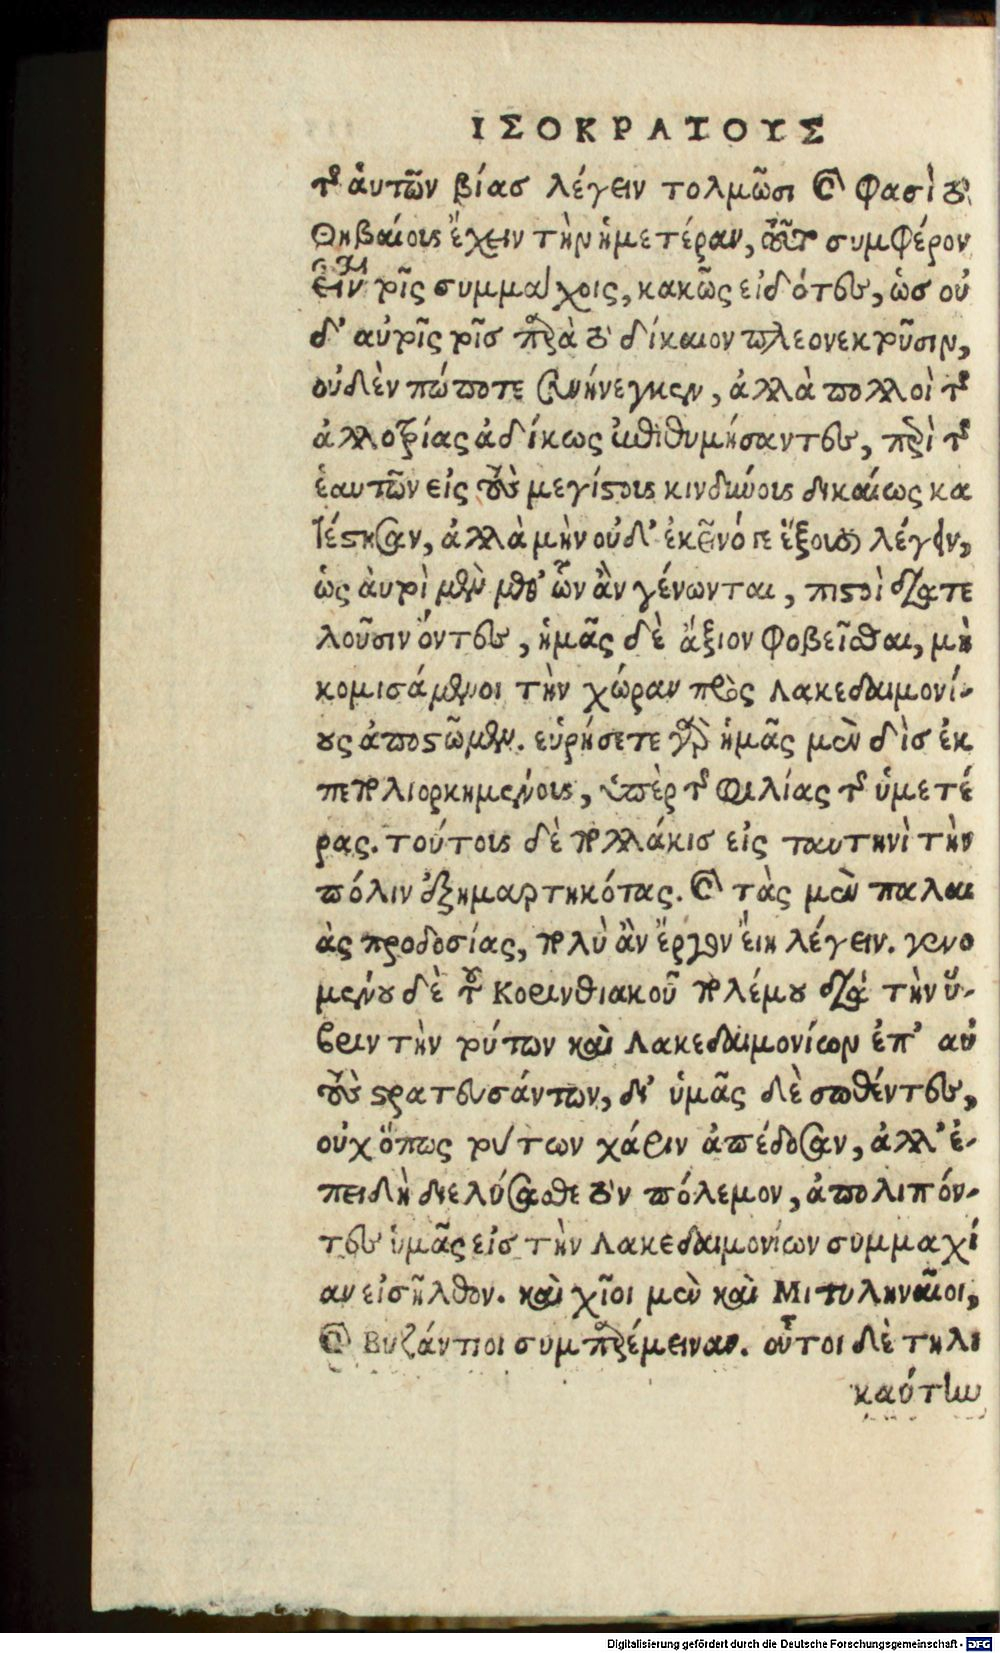 ΙΣΟΚΡΑΤΟΥΣ
τῆς αὑτῶν βίας λέγειν τολμῶσι καὶ φασὶ τοὺς
Θηβαίους ἔχειν τὴν ἡμετέραν, τοῦτο συμφέρον
εἶναι τοῖς συμμάχοις, κακῶς εἰδότες, ὡς οὐ
δ' αὐτοῖς τοῖς παρὰ τὸ δίκαιον πλεονεκτοῦσιν,
οὐδὲν πώποτε συνήνεγκεν, ἀλλὰ πολλοὶ τῆς
ἀλλοτρίας ἀδίκως ἐπιθυμήσαντες, περὶ τῆς
ἑαυτῶν εἰς τοὺς μεγίστους κινδύνους δικαίως κα
τέστησαν, ἀλλὰ μὴν οὐδ' ἐκεῖνό γε ἕξουσι λέγειν,
ὡς αὐτοὶ μὲν μεθ' ὧν ἂν γένωνται, πιστοὶ διατε
λοῦσιν ὄντες, ἡμᾶς δὲ ἄξιον φοβεῖσθαι, μὴ
κομισάμενοι τὴν χώραν πρὸς Λακεδαιμονί-
ους ἀποστῶμεν. εὑρήσετε γὰρ ἡμᾶς μὲν δὶς ἐκ
πεπολιορκημένους, ὑπὲρ τῆς φιλίας τῆς ὑμετέ
ρας. τούτους δὲ πολλάκις εἰς ταυτηνὶ τὴν
πόλιν ἐξημαρτηκότας. καὶ τὰς μὲν παλαι
ὰς προδοσίας, πολὺ ἂν ἔργον εἴη λέγειν. γενο
μένου δὲ τοῦ Κορινθιακοῦ πολέμου διὰ τὴν ὕ-
βριν τὴν τούτων καὶ Λακεδαιμονίων ἐπ' αὐ
τοὺς στρατευσάντων, δι' ὑμᾶς δὲ σωθέντες,
οὐχ ὅπως τούτων χάριν ἀπέδοσαν, ἀλλ' ἐ-
πειδὴ διελύσασθε τὸν πόλεμον, ἀπολιπόν-
τες ὑμᾶς εἰς τὴν Λακεδαιμονίων συμμαχί
αν εἰσῆλθον. καὶ χῖοι μὲν καὶ Μιτυληναῖοι,
καὶ Βυζάντιοι συμπαρέμειναν. οὗτοι δὲ τηλι
καύτην
Digitalisierung gefördert durch die Deutsche Forschungsgemeinschaft - DFG